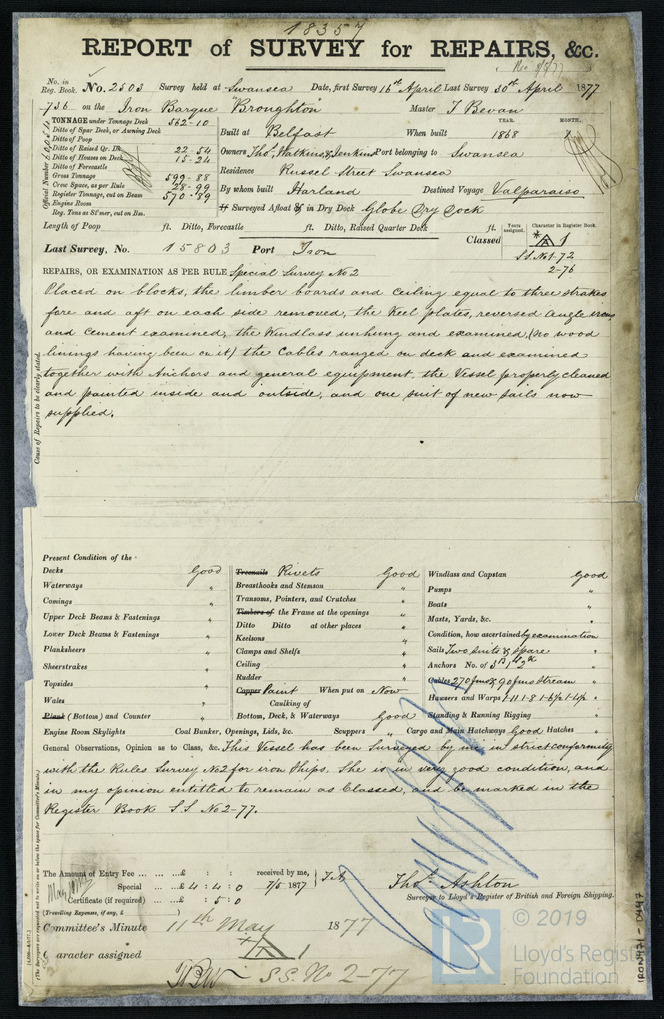 18357
REPORT of SURVEY for REPAIRS, &c.
Rec 8/5/77
No. in Reg. Book. No. 2503 Survey held at Swansea Date, first Survey 16th April Last Survey 30th April 1877
736 on the Iron Barque "Broughton" Master J Bevan
TONNAGE under Tonnage Deck 562-10
Ditto of Spar Deck, or Awning Deck
Ditto of Poop
Ditto of Raised Qr. Dk. 22-54
Ditto of Houses on Deck 15-24
Ditto of Forecastle
Gross Tonnage 599-88
Crew Space, as per Rule 28-99
Register Tonnage, cut on Beam 570-89
Engine Room
Reg. Tons as St'mer, cut on Bm.
Official Number
Built at Belfast When built YEAR. 1868 MONTH.
Owners Thos. Watkins & Jenkins Port belonging to Swansea
Residence Russel Street Swansea
By whom built Harland Destined Voyage Valparaiso
If Surveyed Afloat or in Dry Dock Globe Dry Dock
Length of Poop ft. Ditto, Forecastle ft. Ditto, Raised Quarter Deck ft.
Years assigned. Character in Register Book.
Last Survey, No. 15803 Port Iron Classed A 1
S.S. No 1-72
2-76
REPAIRS, OR EXAMINATION AS PER RULE Special Survey No 2
Placed on blocks, the limber boards and Ceiling equal to three strakes
fore and aft on each side removed, the Keel plates, reversed Angle irons
and Cement examined, the Windlass unhung and examined, (no wood
linings having been on it) the Cables ranged on deck and examined
together with Anchors and general equipment, the Vessel properly cleaned
and painted inside and outside, and one suit of new sails now
supplied.
Cause of Repairs to be clearly stated.
Present Condition of the
Decks Good
Waterways "
Comings "
Upper Deck Beams & Fastenings "
Lower Deck Beams & Fastenings "
Planksheers "
Sheerstrakes "
Topsides "
Wales "
Plank (Bottom) and Counter "
Engine Room Skylights
Treenails Rivets Good
Breasthooks and Stemson "
Transoms, Pointers, and Crutches "
Timbers of the Frame at the openings "
Ditto Ditto at other places "
Keelsons "
Clamps and Shelfs "
Ceiling "
Rudder "
Copper Paint When put on Now
Caulking of
Bottom, Deck, & Waterways Good
Coal Bunker, Openings, Lids, &c. Scuppers "
Windlass and Capstan Good
Pumps "
Boats "
Masts, Yards, &c. "
Condition, how ascertained by examination
Sails Two suits & spare
Anchors No. of 3B, 1S, 2K "
Cables 270 fms & 90 fms Stream
Hawsers and Warps "
Standing & Running Rigging "
Cargo and Main Hatchways Good Hatches "
General Observations, Opinion as to Class, &c. This Vessel has been Surveyed by me in strict conformity
with the Rules Survey No 2 for iron Ships. She is in very good condition, and
in my opinion entitled to remain as Classed, and be marked in the
Register Book S.S. No 2-77.
The Amount of Entry Fee ... ...£ : : received by me,
Special ... ...£ 4 : 4 : 0 7/5 1877
Certificate (if required) ...£ : 5 : 0
(Travelling Expenses, if any, £
Thos. Ashton
Surveyor to Lloyd's Register of British and Foreign Shipping.
Committee's Minute 11th May 1877
Character assigned A 1
S.S. No 2-77
(The Surveyors are requested not to write on or below the space for Committee's Minute.)
LR
© 2019
Lloyd's Register
Foundation
IRON471-0447